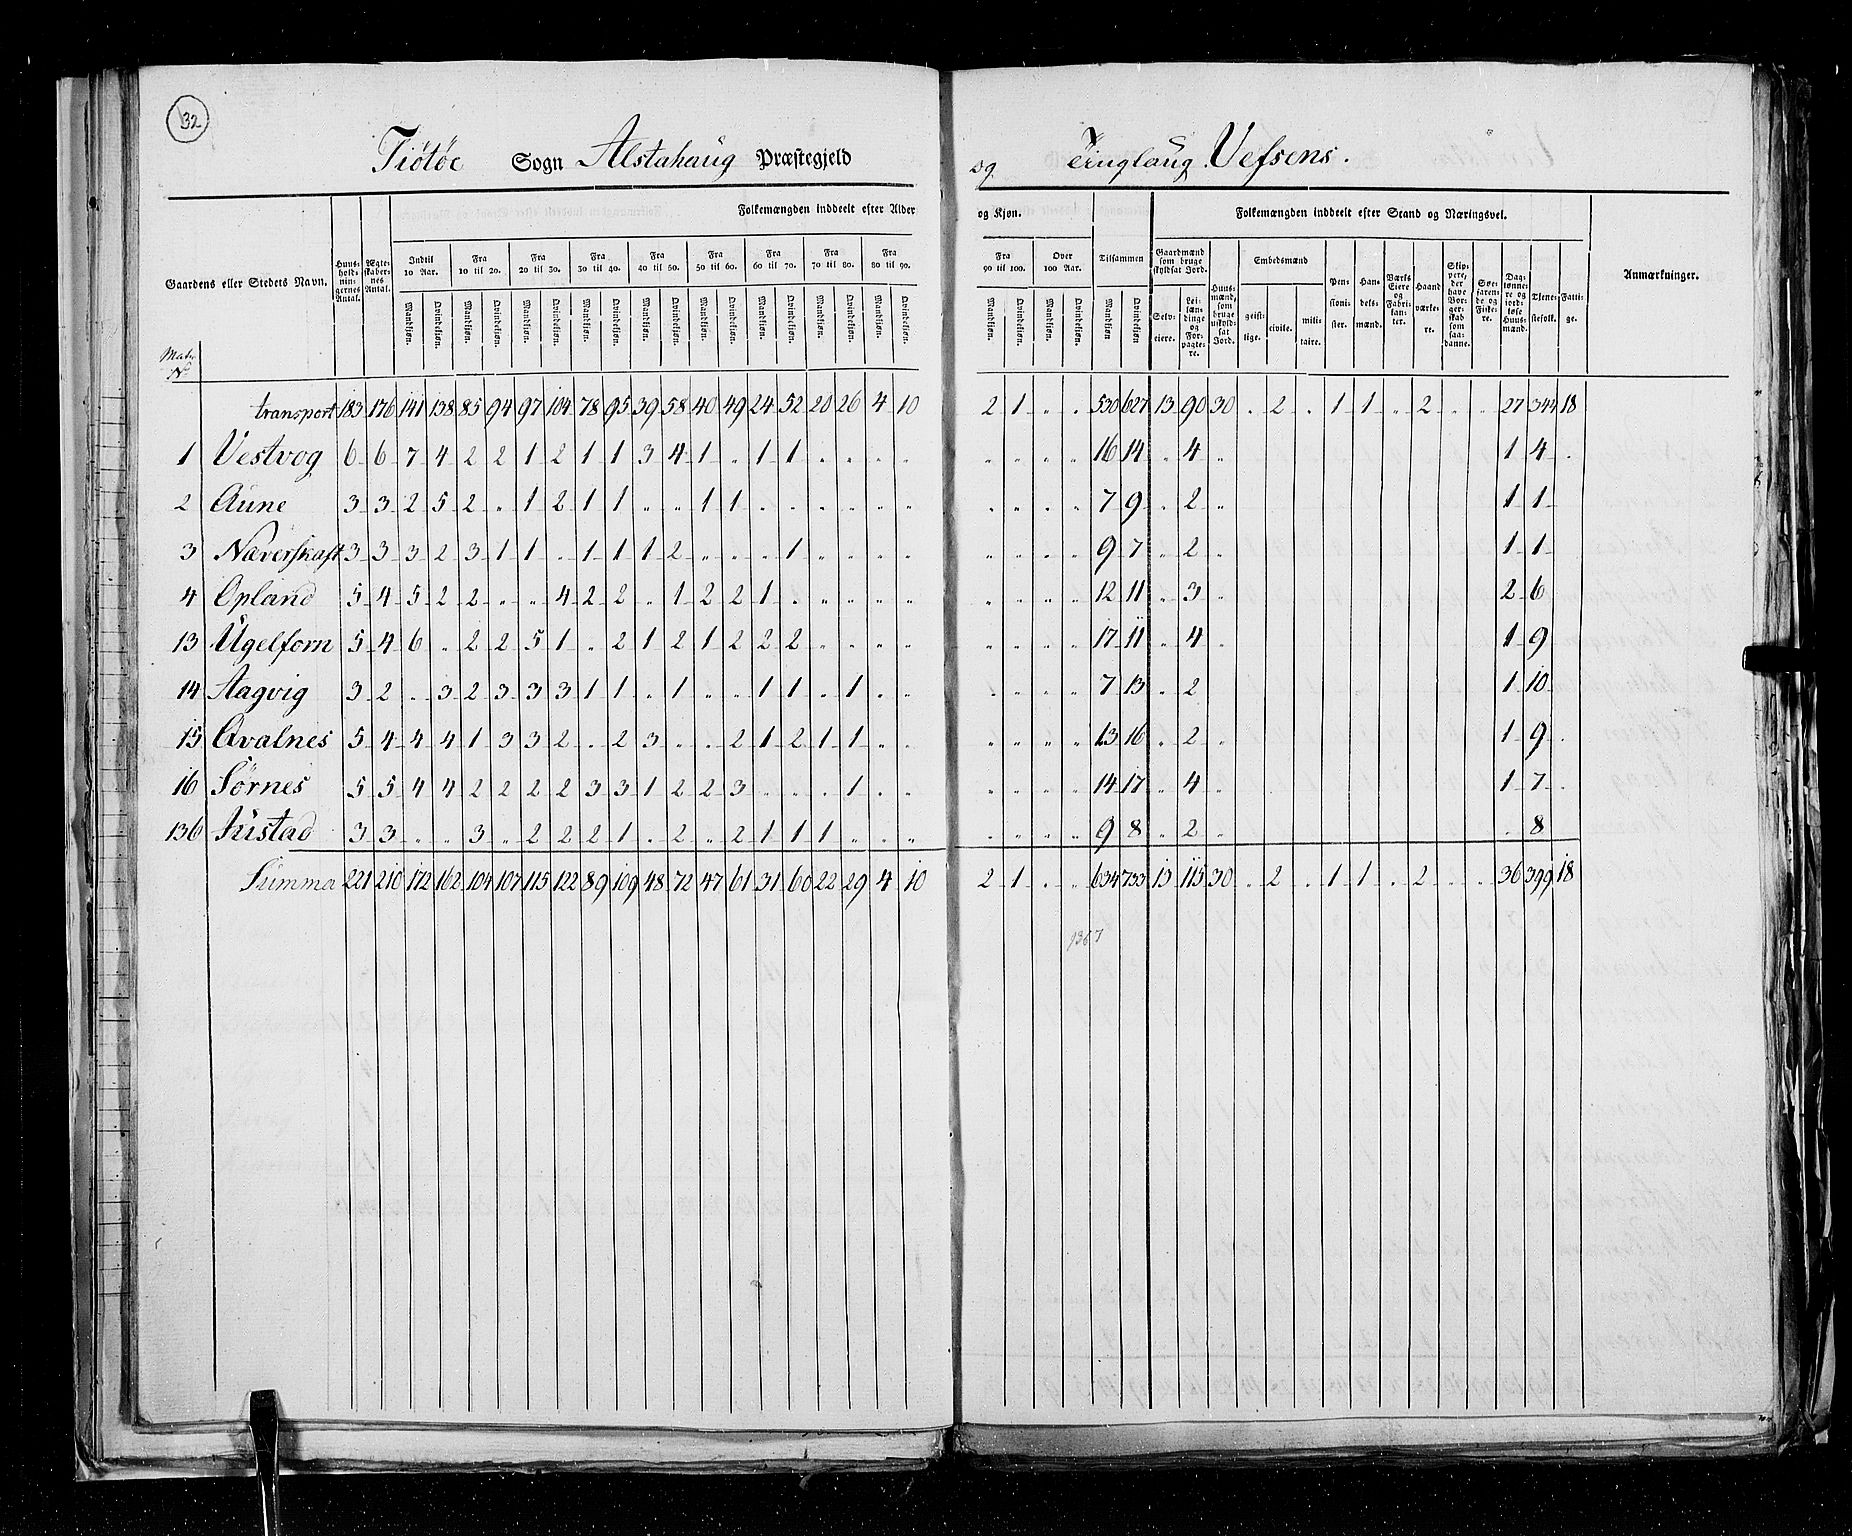 32
Tiötöe Sogn Alstahaug Præstegjeld og Tinglaug Vefsens.
Folkemængden inddeelt efter Alder og Kjøn. Folkemængden inddeelt efter Stand og Næringsvei.
Gaardens eller Stedets Navn. Huusholdningernes Antal. Ægteskabernes Antal. Indtil 10 Aar. Fra 10 til 20. Fra 20 til 30. Fra 30 til 40. Fra 40 til 50. Fra 50 til 60. Fra 60 til 70. Fra 70 til 80. Fra 80 til 90. Fra 90 til 100. Over 100 Aar. Tilsammen Gaardmænd som bruge skyldsat Jord. Huusmænd, som bruge uskyldsat Jord. Embedsmænd Pensionister. Handelsmænd. Værks Eiere og Fabrikanter. Haandværkere. Skippere, der have Borgerskab som saadanne. Søefarende og Fiskere. Dagtønnere og jordløse Huusmænd. Tjenestefolk. Fattige. Anmærkninger.
Mandkjøn. Qvindekjøn. Mandkjøn. Qvindekjøn. Mandkjøn. Qvindekjøn. Mandkjøn. Qvindekjøn. Mandkjøn. Qvindekjøn. Mandkjøn. Qvindekjøn. Mandkjøn. Qvindekjøn. Mandkjøn. Qvindekjøn. Mandkjøn. Qvindekjøn. Mandkjøn. Qvindekjøn. Mandkjøn. Qvindekjøn. Mandkjøn Qvindekjøn. Selveiere. Leilændinge og Forpagtere. geistlige. civile. militaire.
Matr. No
transport 183 176 141 138 85 94 97 104 78 95 39 58 40 49 24 52 20 26 4 10 2 1 " " 530 627 13 90 30 . 2 . 1 1 " 2 " " 27 344 18
1 Vestvog 6 6 7 4 2 2 1 2 1 1 3 4 1 " 1 1 " " " " " " " " 16 14 " 4 " 1 4 .
2 Aune 3 3 2 5 2 " 1 2 1 1 " " 1 1 " " " " " " " " " " 7 9 " 2 " 1 1
3 Næverskaft 3 3 3 2 3 1 1 " 1 1 1 2 " " " 1 " " " " " " " " 9 7 " 2 " 1 1
4 Opland 5 4 5 2 2 " " 4 2 2 " 1 2 2 1 " " " " " " " " " 12 11 " 3 " 2 6
13 Ugelforn 5 4 6 " 2 2 5 1 " 2 1 2 1 2 2 2 " " " " " " " " 17 11 " 4 " 1 9
14 Aagvig 3 2 " 3 2 3 3 3 1 1 " 1 " " 1 1 " 1 " " " " " " 7 13 " 2 " 1 10
15 Qvalnes 5 4 4 4 1 3 3 2 " 2 3 " " 2 1 2 1 1 " " " " " " 13 16 " 2 " 1 9 .
16 Sörnes 5 5 4 4 2 2 2 2 3 3 1 2 2 3 " " " 1 " " " " " " 14 17 " 4 " 1 7 .
136 Justad 3 3 " " 3 " 2 2 2 1 " 2 " 2 1 1 1 " " " " " " " 9 8 " 2 " " 8
Summa 221 210 172 162 104 107 115 122 89 109 48 72 47 61 31 60 22 29 4 10 2 1 " " 634 733 13 115 30 " 2 " 1 1 " 2 " " 36 399 18
1367